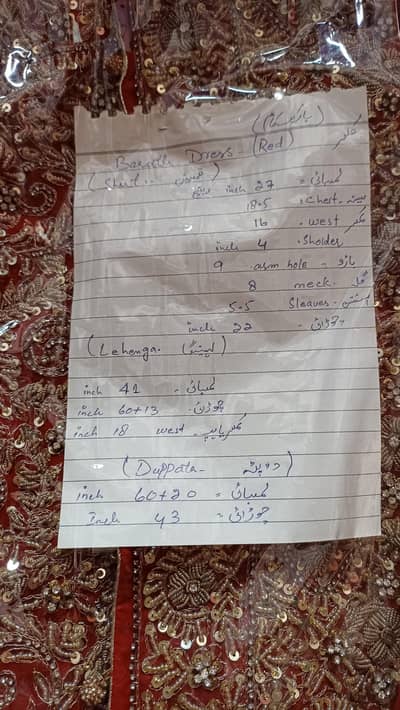 کلر
Barath Dress (Red)
(Shirt. قمیض)
لمبائی = 27 inch
Chest. 18.5
کمر west. 16
Sholder. 4 inch
بازو - arm hole. 9
گلا meck. 8
Sleaves. 5.5
چوڑائی = 22 inch
(Lehenga. لہنگا)
لمبائی = 41 inch
چوڑائی. 60+13 inch
west 18 inch
(Duppata- دوپٹہ)
لمبائی = 60+20 inch
چوڑائی = 43 Inch